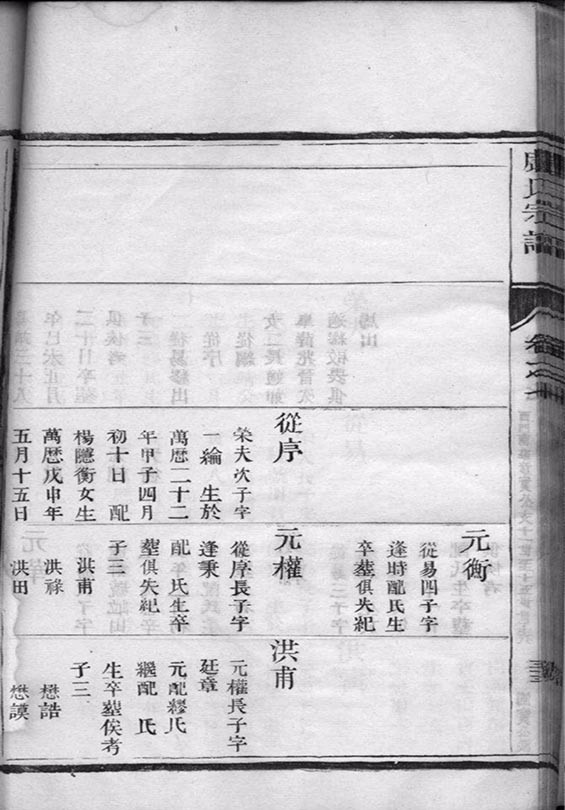 盧氏宗譜
卷之
從序
榮夫次子字
一綸 生於
萬曆二十二
年甲子四月
初十日 配
楊隱衡女生
萬曆戊申年
五月十五日
元衡
從易四子字
逢時配氏生
卒塟俱失紀
元權
從序長子字
逢秉
配年氏生卒
塟俱失紀
子三
洪甫
洪祿
洪田
洪甫
元權長子字
廷章
元配繆氏
繼配 氏
生卒塟俟考
子三
懋誥
懋謨